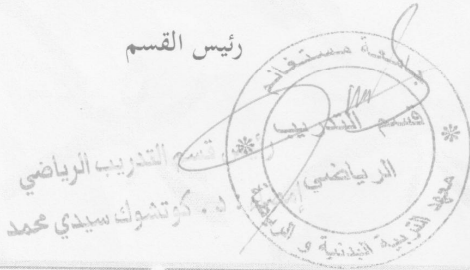 رئيس القسم
جامعة مستغانم
قسم التدريب
الرياضي
معهد التربية البدنية و الرياضية
رئيس قسم التدريب الرياضي
د. كوتشوك سيدي محمد